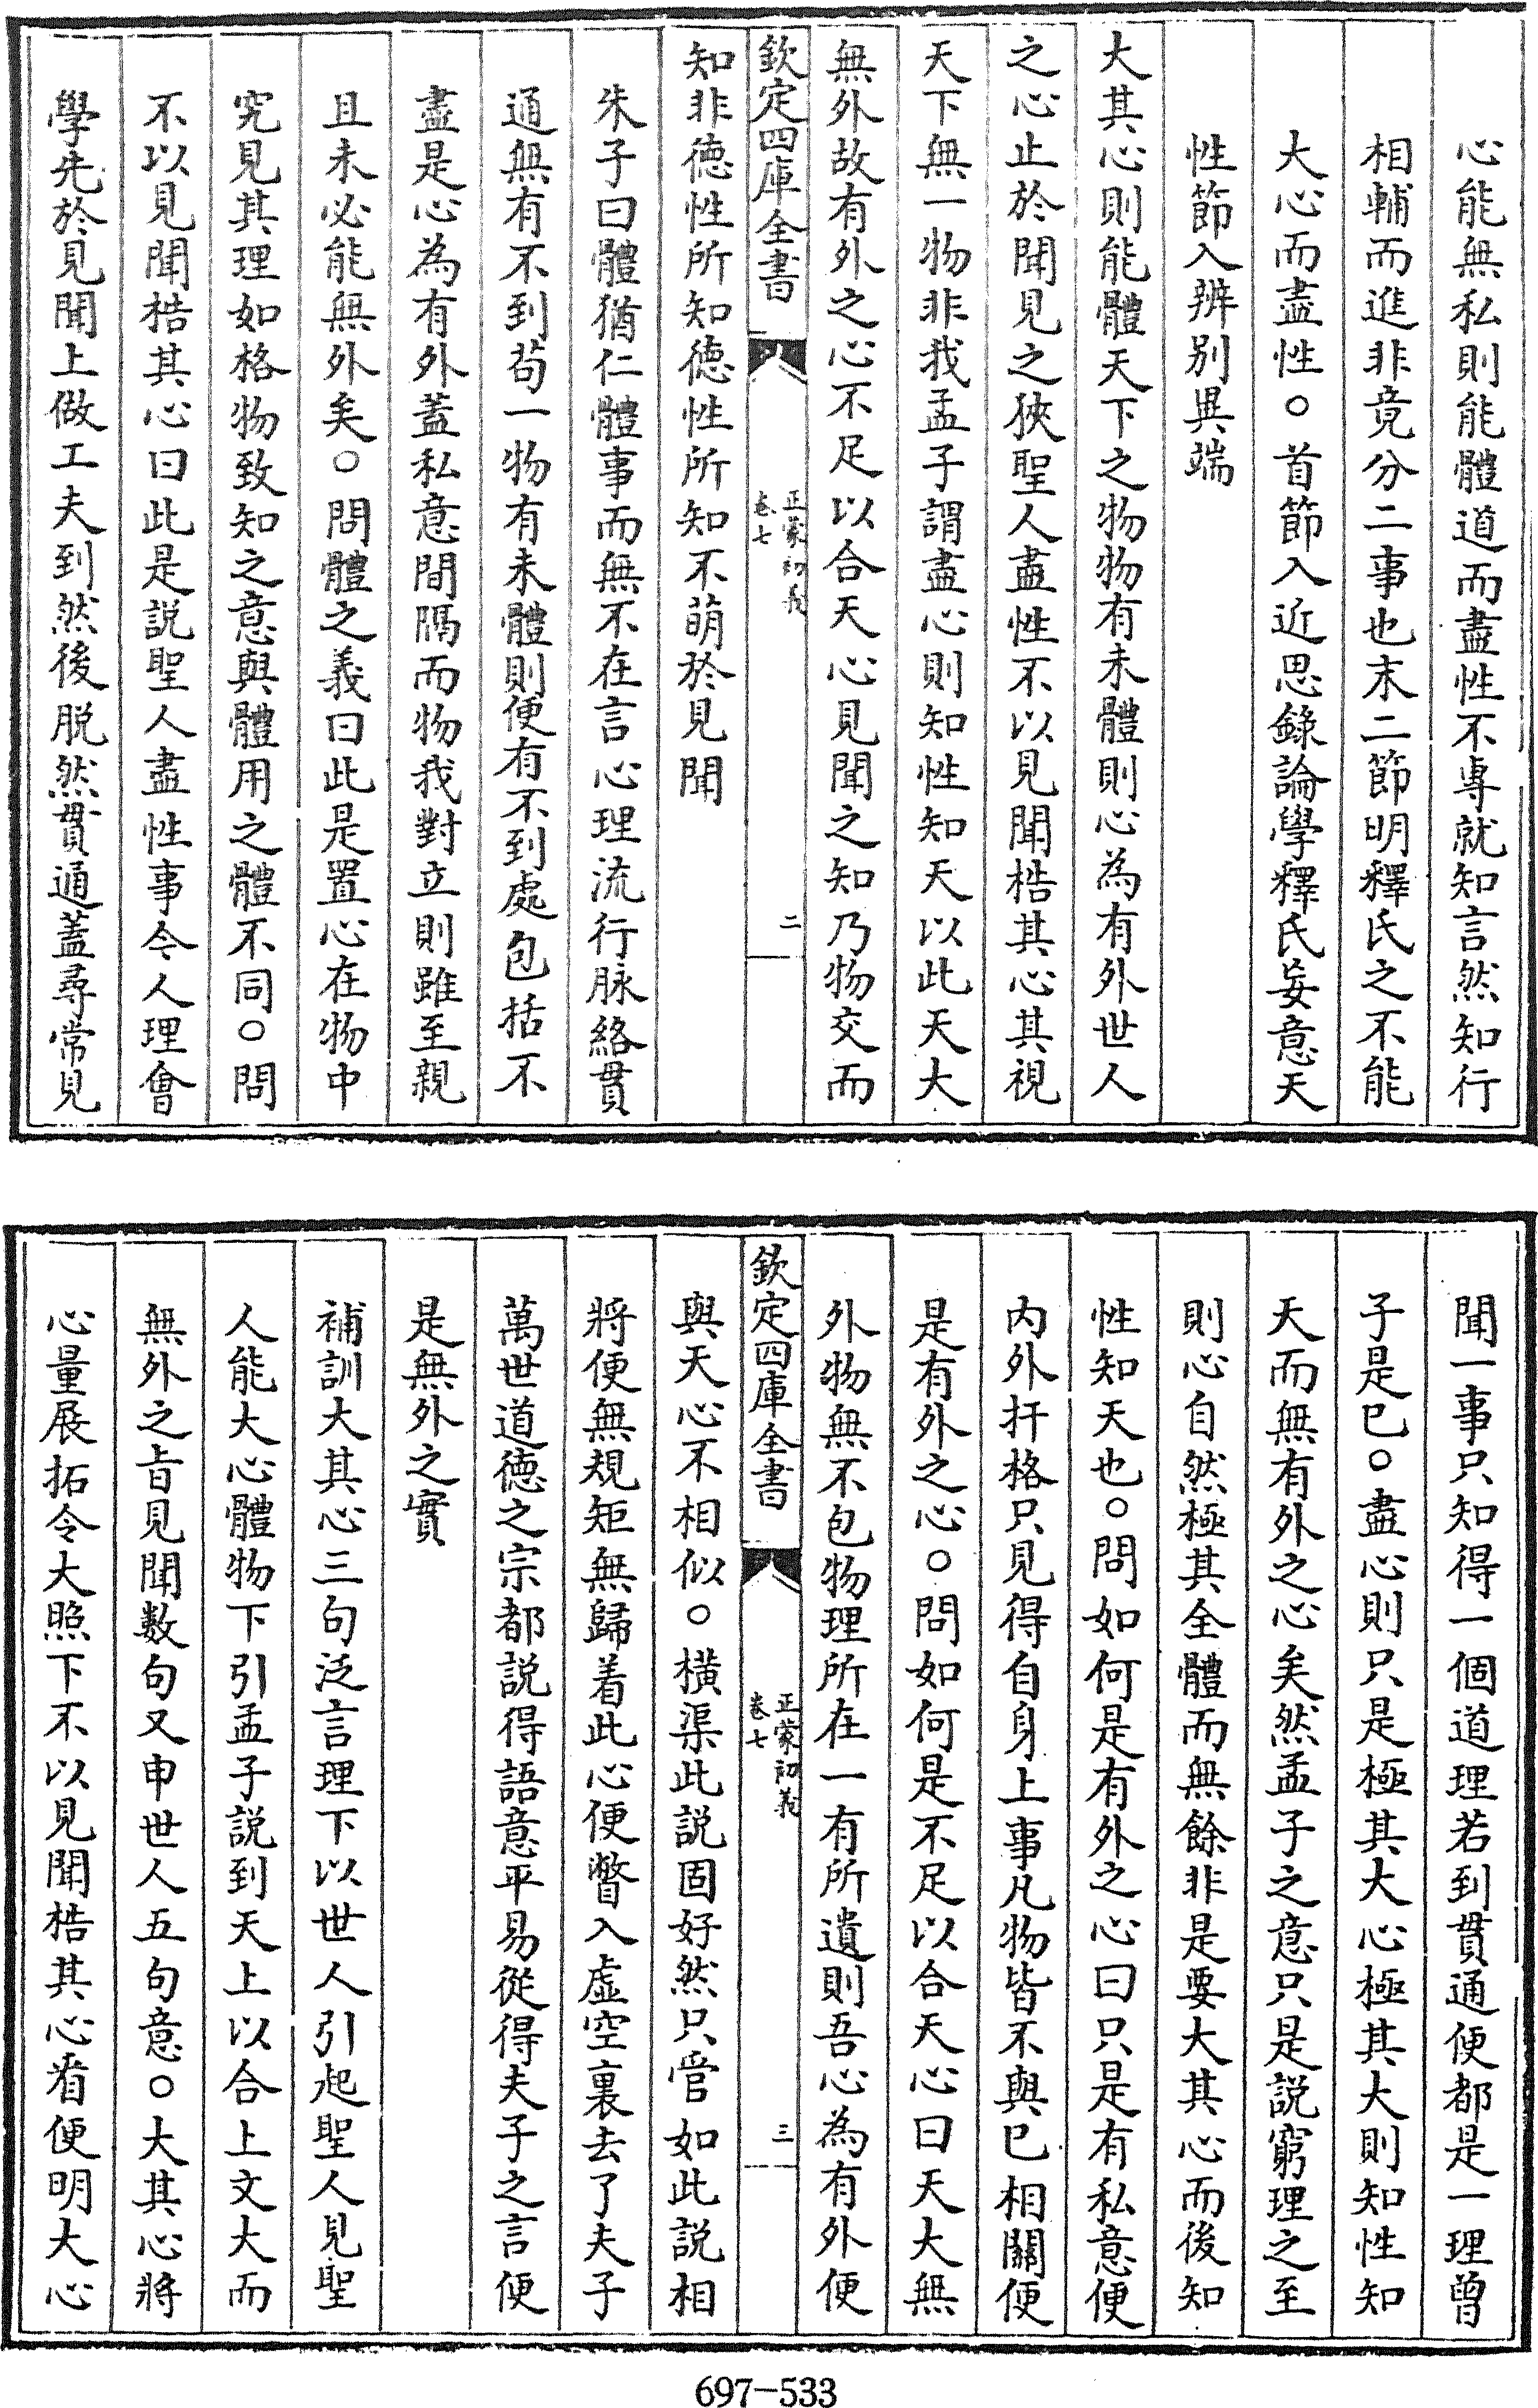 心能無私則能體道而盡性不専就知言然知行
相輔而進非竟分二事也末二節明釋氏之不能
大心而盡性○首節入近思錄論學釋氏妄意天
性節入辨别異端
大其心則能體天下之物物有未體則心為有外世人
之心止於聞見之狹聖人盡性不以見聞梏其心其視
天下無一物非我孟子謂盡心則知性知天以此天大
無外故有外之心不足以合天心見聞之知乃物交而
欽定四庫全書
正蒙初義
卷七
二
知非徳性所知徳性所知不萌於見聞
朱子曰體猶仁體事而無不在言心理流行脉絡貫
通無有不到苟一物有未體則便有不到處包括不
盡是心為有外蓋私意間隔而物我對立則雖至親
且未必能無外矣○問體之義曰此是置心在物中
究見其理如格物致知之意與體用之體不同○問
不以見聞梏其心曰此是説聖人盡性事令人理會
學先於見聞上做工夫到然後脱然貫通蓋尋常見
聞一事只知得一個道理若到貫通便都是一理曾
子是已○盡心則只是極其大心極其大則知性知
天而無有外之心矣然孟子之意只是説窮理之至
則心自然極其全體而無餘非是要大其心而後知
性知天也○問如何是有外之心曰只是有私意便
内外扞格只見得自身上事凡物皆不與已相關便
是有外之心○問如何是不足以合天心曰天大無
外物無不包物理所在一有所遺則吾心為有外便
欽定四庫全書
正蒙初義
卷七
三
與天心不相似○横渠此説固好然只管如此説相
將便無規矩無歸着此心便瞥入虚空裏去了夫子
萬世道徳之宗都説得語意平易從得夫子之言便
是無外之實
補訓大其心三句泛言理下以世人引起聖人見聖
人能大心體物下引孟子説到天上以合上文大而
無外之㫖見聞數句又申世人五句意○大其心將
心量展拓令大照下不以見聞梏其心看便明大心
697-533